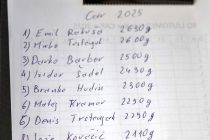 Cer 2025
1) Emil Rakuša 2630g
2) Mirko Trstenjak 2600g
3) Darko Barber 2500g
4) Izidor Šadl 2430g
5) Branko Hudin 2300g
6) Matej Kramar 2250g
Denis Trstenjak 2250g
Kovačič 2140g